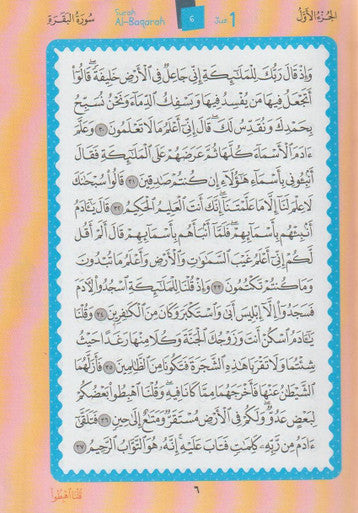 Surah
Al-Baqarah
6
Juz 1
الجُزْءُ الأَوَّلُ
سُورَةُ البَقَرَةِ
وَإِذْ قَالَ رَبُّكَ لِلْمَلَٰٓئِكَةِ إِنِّى جَاعِلٌ فِى ٱلْأَرْضِ خَلِيفَةً ۖ قَالُوٓا۟
أَتَجْعَلُ فِيهَا مَن يُفْسِدُ فِيهَا وَيَسْفِكُ ٱلدِّمَآءَ وَنَحْنُ نُسَبِّحُ
بِحَمْدِكَ وَنُقَدِّسُ لَكَ ۖ قَالَ إِنِّىٓ أَعْلَمُ مَا لَا تَعْلَمُونَ ٣٠ وَعَلَّمَ
ءَادَمَ ٱلْأَسْمَآءَ كُلَّهَا ثُمَّ عَرَضَهُمْ عَلَى ٱلْمَلَٰٓئِكَةِ فَقَالَ
أَنۢبِـُٔونِى بِأَسْمَآءِ هَٰٓؤُلَآءِ إِن كُنتُمْ صَٰدِقِينَ ٣١ قَالُوا۟ سُبْحَٰنَكَ
لَا عِلْمَ لَنَآ إِلَّا مَا عَلَّمْتَنَآ ۖ إِنَّكَ أَنتَ ٱلْعَلِيمُ ٱلْحَكِيمُ ٣٢ قَالَ يَٰٓـَٔادَمُ
أَنۢبِئْهُم بِأَسْمَآئِهِمْ ۖ فَلَمَّآ أَنۢبَأَهُم بِأَسْمَآئِهِمْ قَالَ أَلَمْ أَقُل
لَّكُمْ إِنِّىٓ أَعْلَمُ غَيْبَ ٱلسَّمَٰوَٰتِ وَٱلْأَرْضِ وَأَعْلَمُ مَا تُبْدُونَ
وَمَا كُنتُمْ تَكْتُمُونَ ٣٣ وَإِذْ قُلْنَا لِلْمَلَٰٓئِكَةِ ٱسْجُدُوا۟ لِـَٔادَمَ
فَسَجَدُوٓا۟ إِلَّآ إِبْلِيسَ أَبَىٰ وَٱسْتَكْبَرَ وَكَانَ مِنَ ٱلْكَٰفِرِينَ ٣٤ وَقُلْنَا
يَٰٓـَٔادَمُ ٱسْكُنْ أَنتَ وَزَوْجُكَ ٱلْجَنَّةَ وَكُلَا مِنْهَا رَغَدًا حَيْثُ
شِئْتُمَا وَلَا تَقْرَبَا هَٰذِهِ ٱلشَّجَرَةَ فَتَكُونَا مِنَ ٱلظَّٰلِمِينَ ٣٥ فَأَزَلَّهُمَا
ٱلشَّيْطَٰنُ عَنْهَا فَأَخْرَجَهُمَا مِمَّا كَانَا فِيهِ ۖ وَقُلْنَا ٱهْبِطُوا۟ بَعْضُكُمْ
لِبَعْضٍ عَدُوٌّ ۖ وَلَكُمْ فِى ٱلْأَرْضِ مُسْتَقَرٌّ وَمَتَٰعٌ إِلَىٰ حِينٍ ٣٦ فَتَلَقَّىٰٓ
ءَادَمُ مِن رَّبِّهِۦ كَلِمَٰتٍ فَتَابَ عَلَيْهِ ۚ إِنَّهُۥ هُوَ ٱلتَّوَّابُ ٱلرَّحِيمُ ٣٧
٦
قُلْنَا ٱهْبِطُوا۟